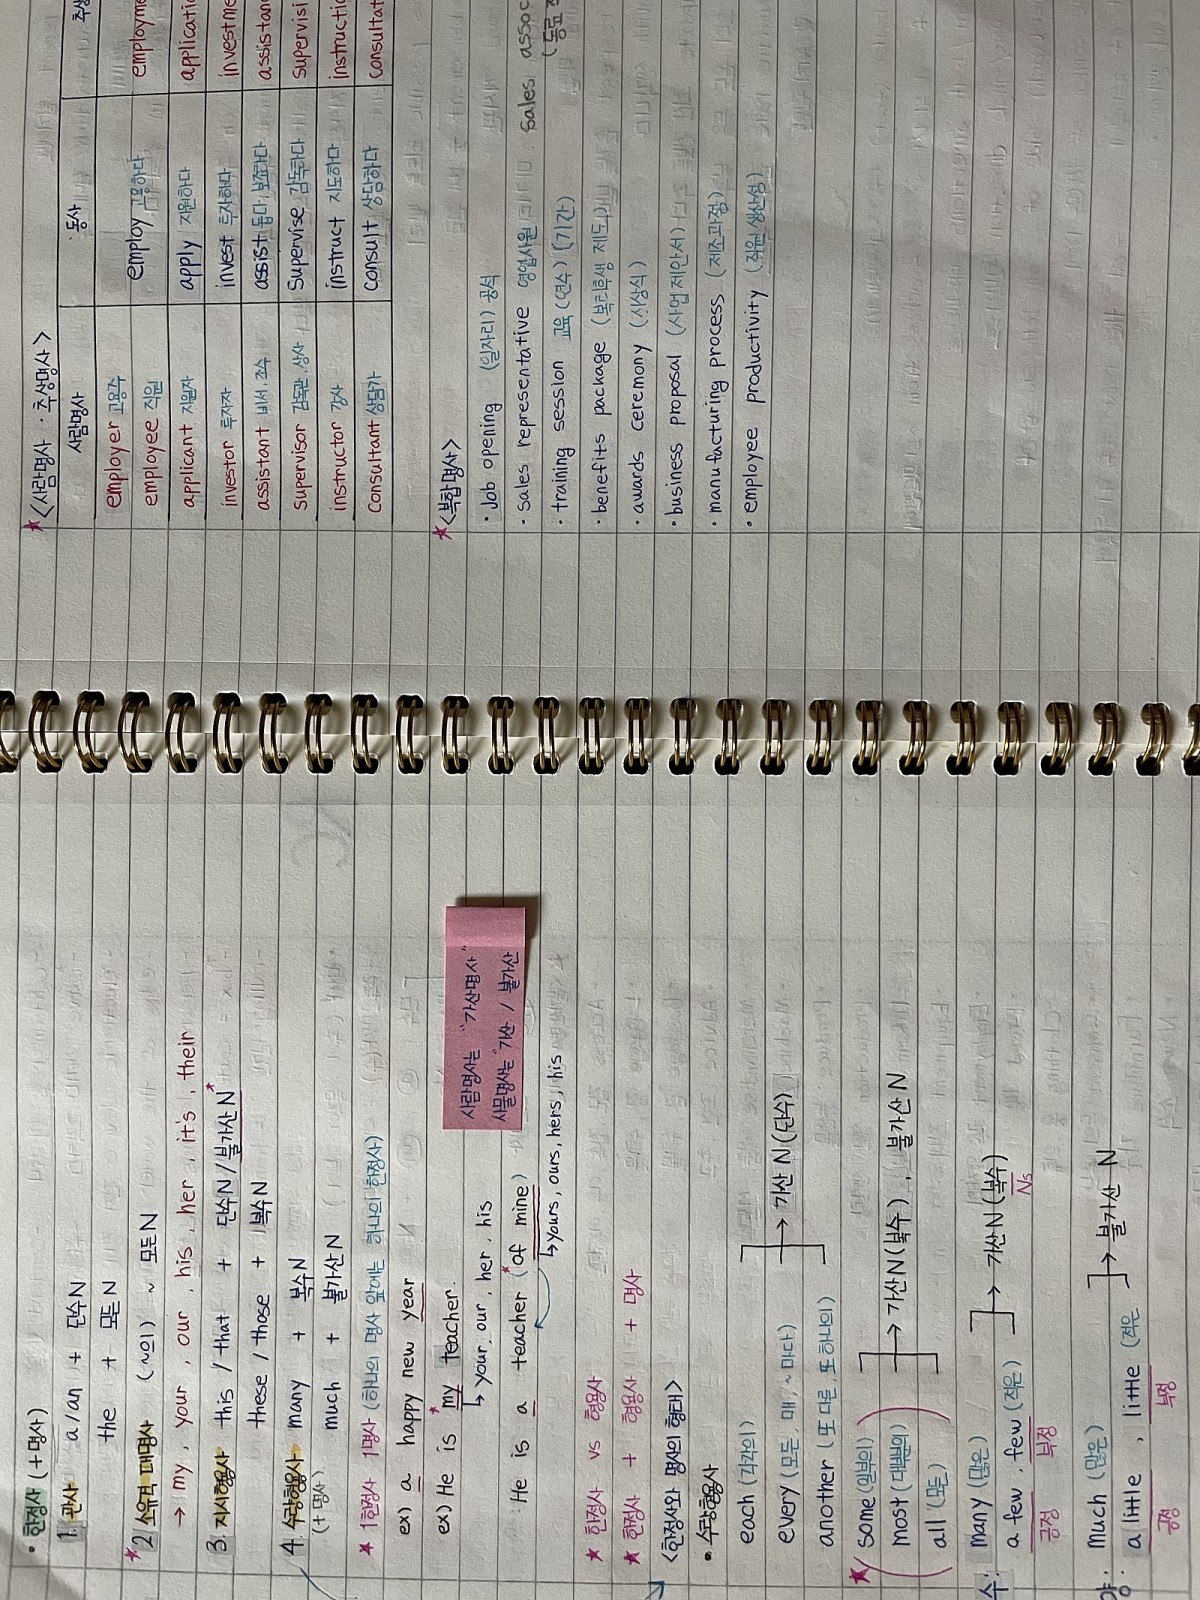 • 한정사 (+명사)
1. 관사 a/an + 단수N
the + 모든 N
★2. 소유격 대명사 (~의) ~ 모든 N
→ my, your, our, his, her, it's, their
3. 지시형용사 this / that + 단수N / 불가산 N*
these / those + 복수 N
4. 수량형용사 many + 복수 N
(+명사) much + 불가산 N
★ 1한정사 1명사 (하나의 명사 앞에는 하나의 한정사)
ex) a happy new year
ex) He is *my teacher.
↳ your, our, her, his
He is a teacher (*of mine)
↳ yours, ours, hers, his
사람명사는 "가산명사"
사물명사는 "가산 / 불가산
★ 한정사 vs 형용사
★ 한정사 + 형용사 + 명사
<한정사와 명사의 형태>
• 수량형용사
each (각각의)
every (모든, 매, ~마다) → 가산 N (단수)
another (또 다른, 또 하나의)
★ some (일부의)
most (대부분의) → 가산 N (복수), 불가산 N
all (모든)
수: many (많은) → 가산 N (복수)
a few, few (적은) Ns
긍정 부정
양: much (많은) → 불가산 N
a little, little (적은
긍정 부정
★ <사람명사 · 추상명사>
사람명사 동사
employer 고용주 employ 고용하다
employee 직원
applicant 지원자 apply 지원하다
investor 투자자 invest 투자하다
assistant 비서, 조수 assist 돕다, 보조하다
supervisor 감독관, 상사 supervise 감독하다
instructor 강사 instruct 지도하다
consultant 상담가 consult 상담하다
★ <복합명사>
• Job opening (일자리) 공석
• sales representative 영업사원 sales
• training session 교육 (연수) (기간)
• benefits package (복리후생 제도)
• awards ceremony (시상식)
• business proposal (사업 제안서)
• manufacturing process (제조과정)
• employee productivity (직원 생산성)